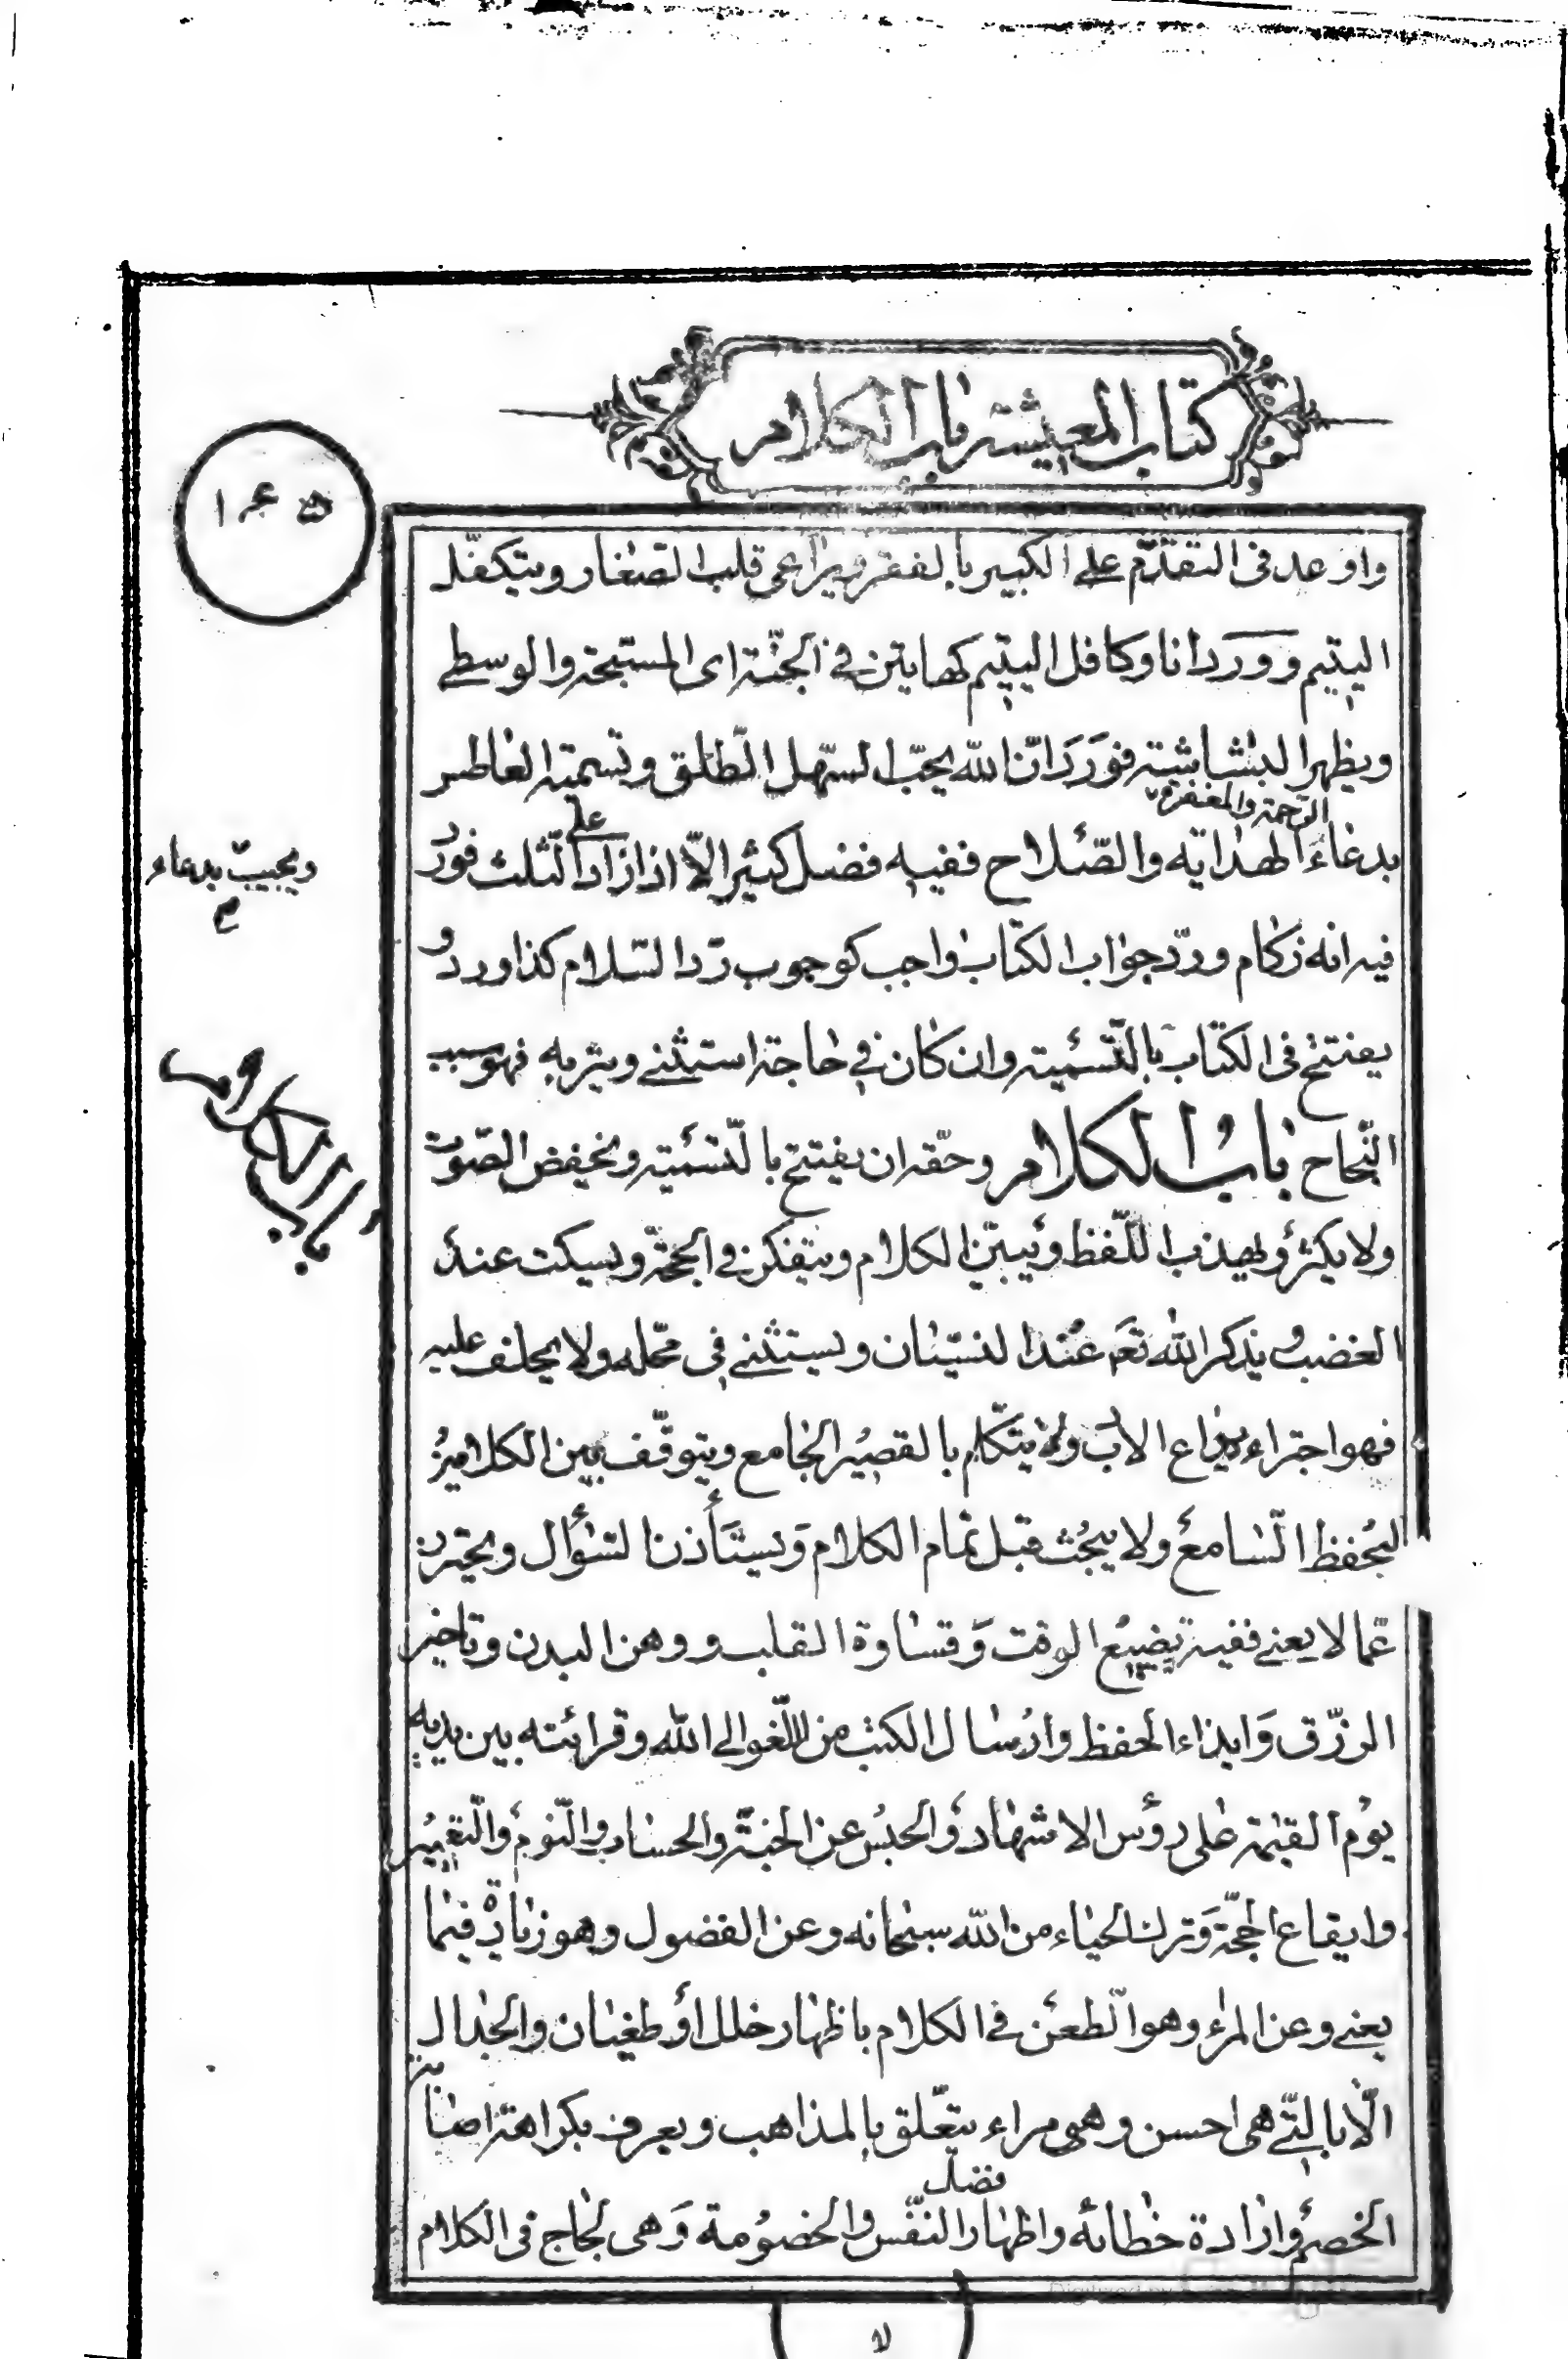 كتاب المعيشة باب الكلام
۱۴۵
واوعد فى التقدّم على الكبير بالفقر ويراعى قلب الصّغار ويتكفّل
اليتيم وورد انا وكافل اليتيم كهاتين فى الجنّة اى المسبّحة والوسطى
ويظهر البشاشة فورد انّ اللّه يحبّ السّهل الطّلق وتسمية العاطس
الرّحمة والمغفرة
بدعاء الهداية والصّلاح ففيه فضل كثير الّا اذا زاد على الثّلث فورد
ويجيب بدعاء
فيه انه زكام وردّ جواب الكتاب واجب كوجوب ردّ السّلام كذا ورد و
يفتتح فى الكتاب بالتّسمية وان كان فى حاجة استثنى ويتربه فهو سبب
النّجاح باب الكلام وحقّه ان يفتتح بالتّسمية ويخفض الصّوت
باب الكلام
ولا يكثر ويهذب اللّفظ ويبيّن الكلام ويتفكّر فى الحجّة ويسكت عند
الغضب ويذكر اللّه تعه عند النسيان ويستثنى فى محّله ولا يحلف عليه
فهو اجتراء الاب يتكلّم بالقصير الجامع ويتوقّف بين الكلامين
ليحفظ السّامع ولا يبحث قبل تمام الكلام ويستأذن السّؤال ويحترز
عمّا لا يعنى ففيه تضييع الوقت وقساوة القلب ووهن البدن وتاخير
الرزّق وايذاء الحفظ وارسال الكتب من اللّغو الى اللّه وقرائته بين يديه
يوم القيمة على رؤس الاشهاد والحبس عن الجنّة والحساب واللّوم والتّعيير
وايقاع الحجّة وترك الحياء من اللّه سبحانه وعن الفضول وهو زيادة فيما
يعنى وعن المراء وهو الطّعن فى الكلام باظهار خلل او طغيان والجدال
الّا بالتّى هى احسن وهى مراء يتعّلق بالمذاهب ويعرف بكراهة اصابة
الخصم وارادة خطائه واظهار فضل النّفس والخصومة وهى لجاج فى الكلام
لا